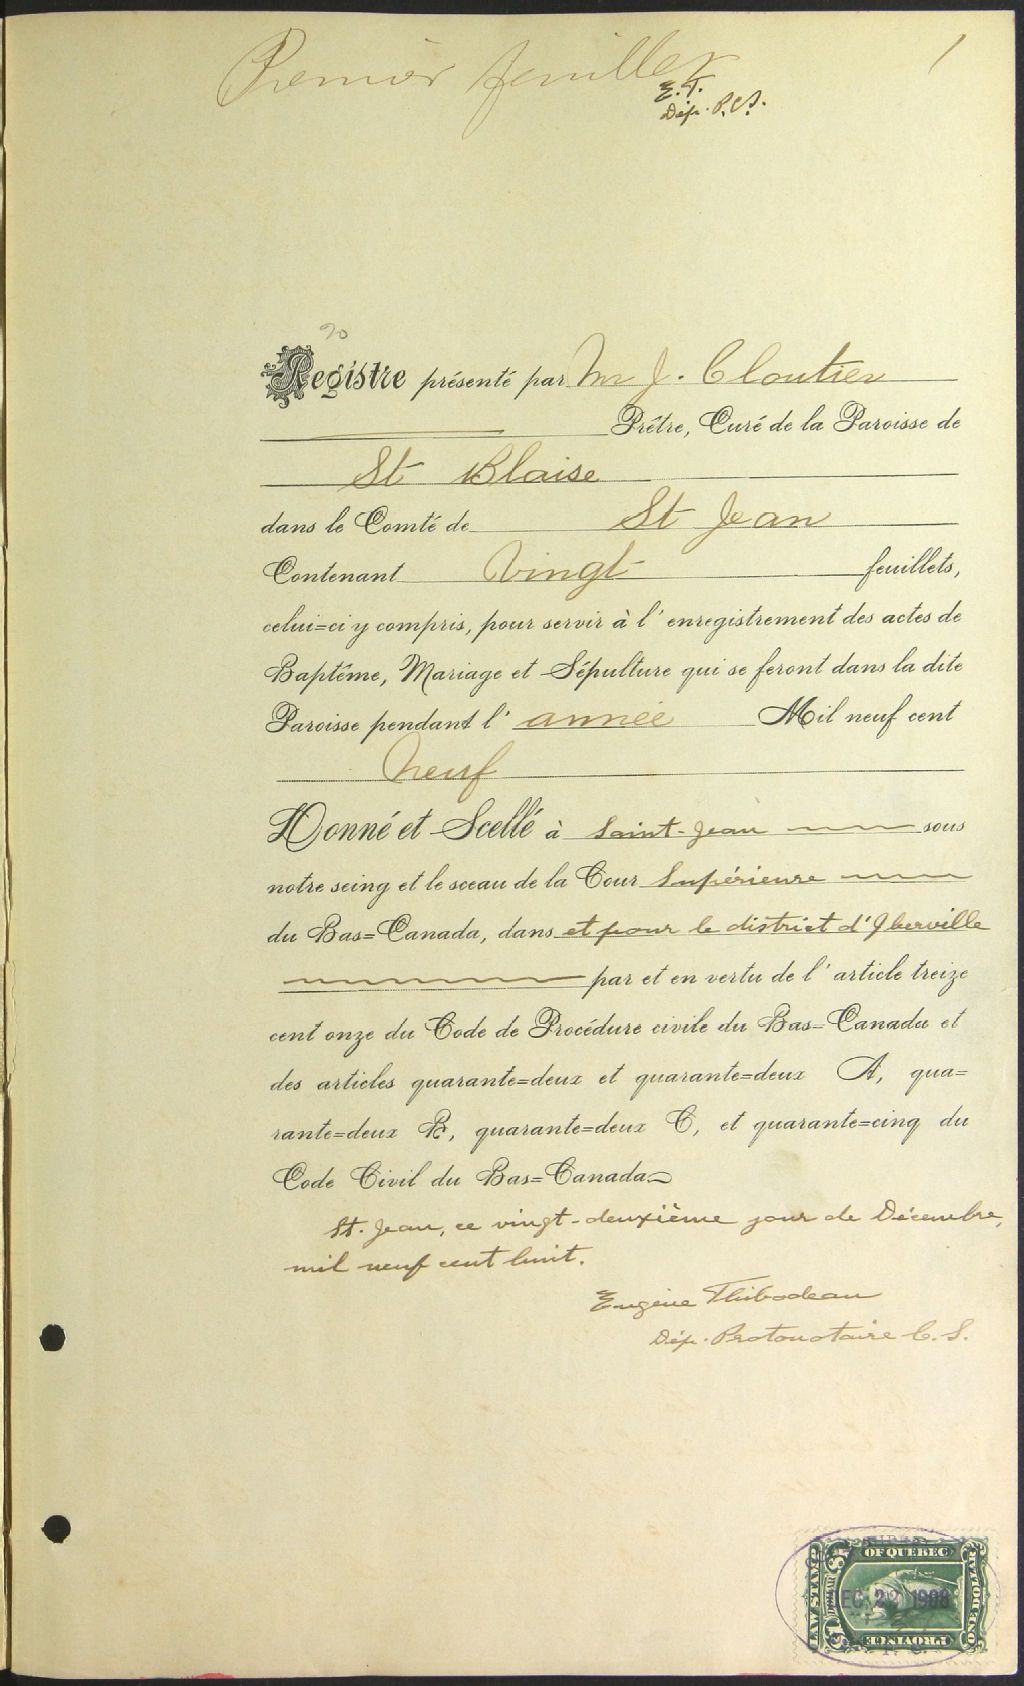 Premier feuillet
1
E. T.
Dép. P. C. S.
20
Registre présenté par Mr J. Cloutier
Prêtre, Curé de la Paroisse de
St Blaise
dans le Comté de St Jean
Contenant Vingt feuillets,
celui=ci y compris, pour servir à l'enregistrement des actes de
Baptême, Mariage et Sépulture qui se feront dans la dite
Paroisse pendant l'année Mil neuf cent
Neuf
Donné et Scellé à Saint-Jean sous
notre seing et le sceau de la Cour Supérieure
du Bas=Canada, dans et pour le district d'Iberville
par et en vertu de l'article treize
cent onze du Code de Procédure civile du Bas=Canada et
des articles quarante=deux et quarante=deux A, qua=
rante=deux B, quarante=deux C, et quarante=cinq du
Code Civil du Bas=Canada
St. Jean, ce vingt-deuxième jour de Décembre,
mil neuf cent huit.
Eugène Thibodeau
Dép. Protonotaire C. S.
OF QUEBEC
LAW STAMP
DOLLAR
ONE DOLLAR
DEC 22 1908
PROVINCE